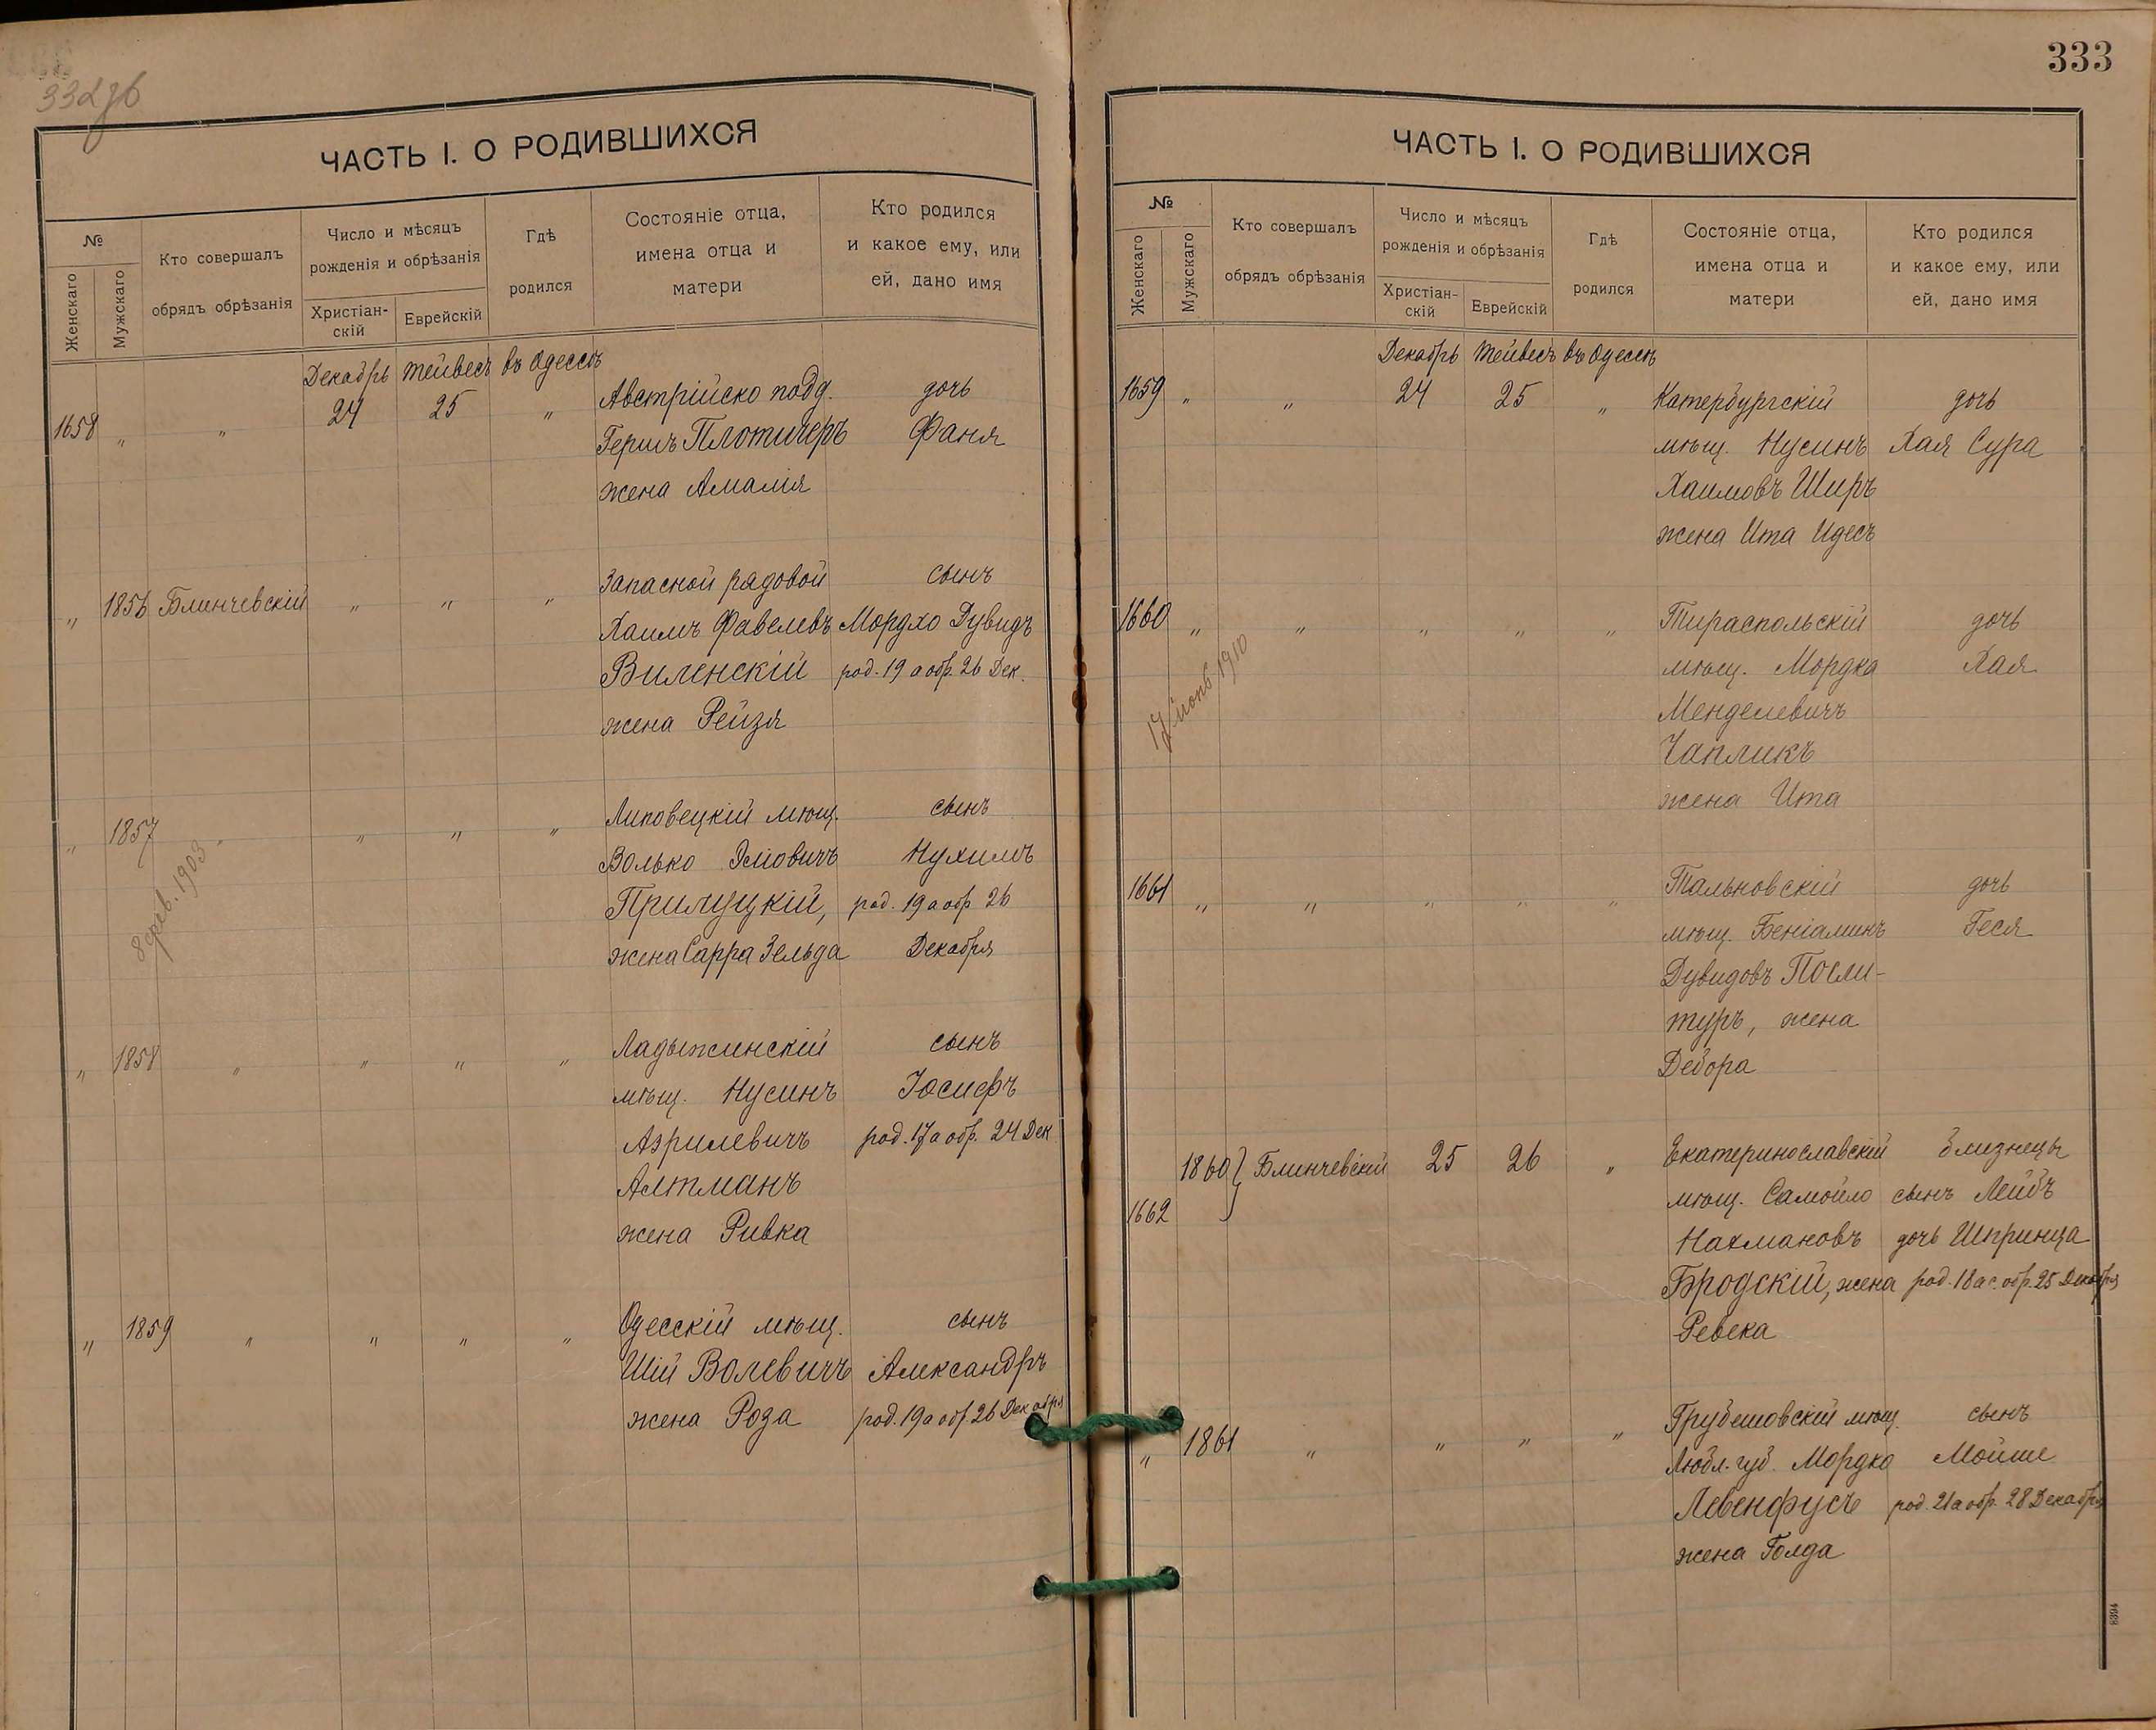 333
ЧАСТЬ I. О РОДИВШИХСЯ
№
Женскаго
Мужскаго
Кто совершалъ
обрядъ обрѣзанія
Число и мѣсяцъ
рожденія и обрѣзанія
Христіан-
скій
Еврейскій
Гдѣ
родился
Состояніе отца,
имена отца и
матери
Кто родился
и какое ему, или
ей, дано имя
Декабрь Тейвесъ въ Одессѣ
1658 „ „ 24 25 „ Австрійско подд. дочь
Гершъ Плотичеръ Фаня
жена Амалія
„ 1856 Блинчевскій „ „ „ Запасной рядовой сынъ
Хаимъ Фавелевъ Мордхо Дувидъ
Виленскій род. 19 а обр. 26 Дек.
жена Рейзя
„ 1857 „ „ „ „ Липовецкій мѣщ. сынъ
Волько Эліовичъ Нухимъ
Прилуцкій, род. 19 а обр 26
жена Сарра Зельда Декабря
8 фев. 1903
„ 1858 „ „ „ „ Ладыжинскій сынъ
мѣщ. Нусинъ Іосифъ
Аэрилевичъ род. 17 а обр. 24 Дек
Алтманъ
жена Ривка
„ 1859 „ „ „ „ Одесскій мѣщ. сынъ
Шій Волевичъ Александръ
жена Роза род. 19 а обр. 26 Декабря
ЧАСТЬ I. О РОДИВШИХСЯ
№
Женскаго
Мужскаго
Кто совершалъ
обрядъ обрѣзанія
Число и мѣсяцъ
рожденія и обрѣзанія
Христіан-
скій
Еврейскій
Гдѣ
родился
Состояніе отца,
имена отца и
матери
Кто родился
и какое ему, или
ей, дано имя
Декабрь Тейвесъ въ Одессѣ
1659 „ „ 24 25 „ Катербургскій дочь
мѣщ. Нусинъ Хая Сура
Хаимовъ Ширъ
жена Ита Идесъ
1660 „ „ „ „ „ Тираспольскій дочь
мѣщ. Мордка Хая
Менделевичъ
Чапликъ
жена Ита
1910
1661 „ „ „ „ „ Тальновскій дочь
мѣщ. Беніаминъ Геся
Дувидовъ Посли-
туръ, жена
Дебора
1860 } Блинчевскій 25 26 „ Екатеринославскій близнецы
1662 мѣщ. Самойло сынъ Лейбъ
Нахмановъ дочь Шпринца
Бродскій, жена род. 18 а с. обр. 25 Декабря
Ревека
„ 1861 „ „ „ „ Грубешовскій мѣщ. сынъ
Любл. губ. Мордко Мойше
Левенфусъ род. 21 а обр. 28 Декабря
жена Голда
8394